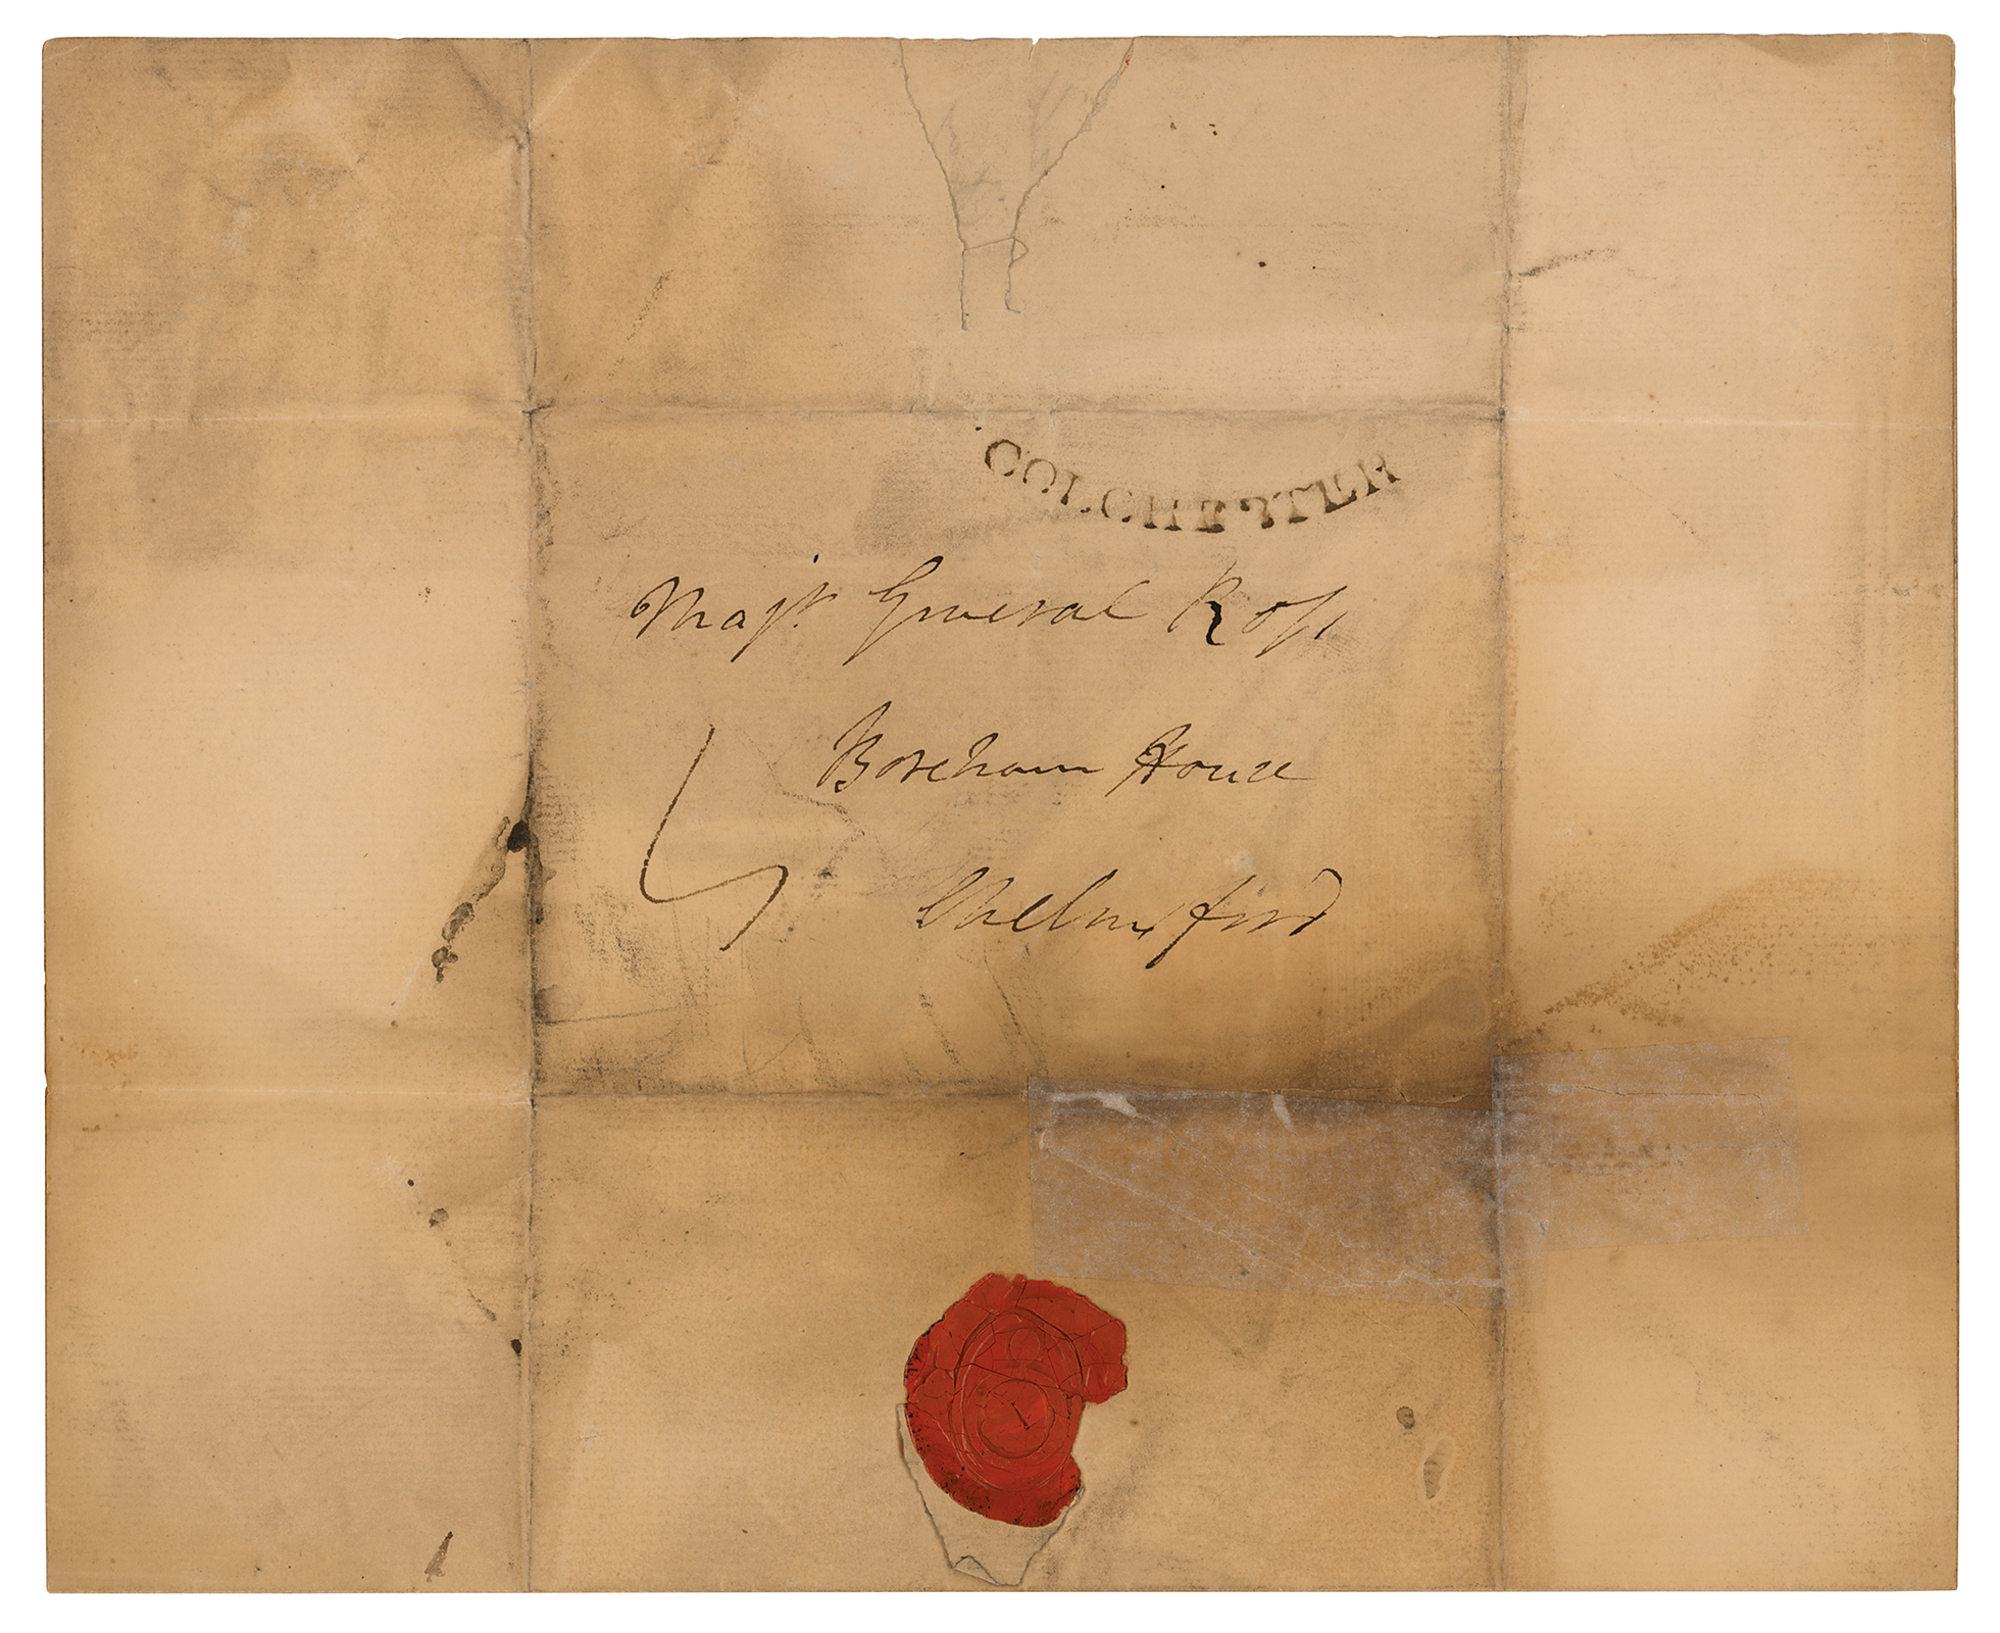 COLCHESTER
Majr General Ross
Boreham House
Chelmsford